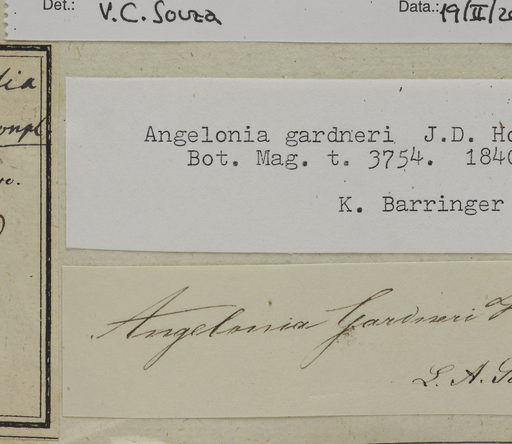 Det.: V.C. Souza Data.: 19/II/20
Angelonia gardneri J.D. Ho
Bot. Mag. t. 3754. 1840
K. Barringer
Angelonia Gardneri
L. A.